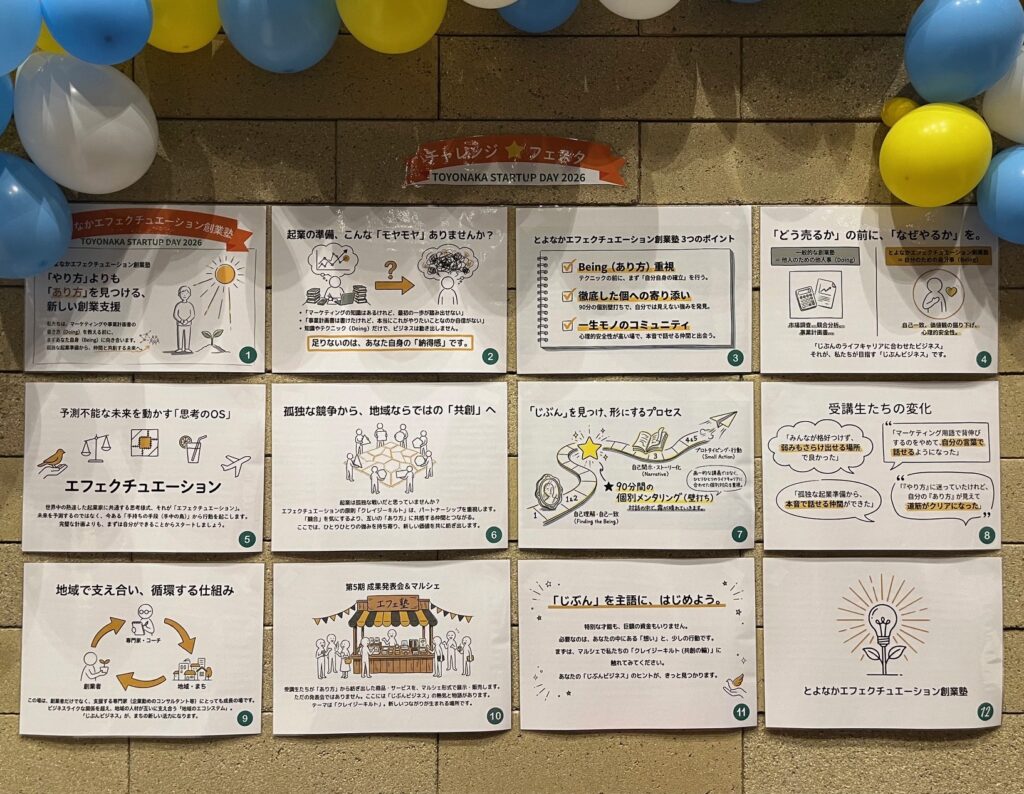 チャレンジ★フェスタ
TOYONAKA STARTUP DAY 2026
なかエフェクチュエーション創業塾
TOYONAKA STARTUP DAY 2026
とよなかエフェクチュエーション創業塾
「やり方」よりも
「あり方」を見つける、
新しい創業支援
私たちは、マーケティングや事業計画書の
書き方（Doing）を教える前に、
まずあなた自身（Being）に向き合います。
孤独な起業準備から、仲間と共創する未来へ。
1
起業の準備、こんな「モヤモヤ」ありませんか？
?
・「マーケティングの知識はあるけれど、最初の一歩が踏み出せない」
・「事業計画書は書けたけれど、本当にこれがやりたいことなのか自信がない」
・知識やテクニック（Doing）だけで、ビジネスは動き出しません。
足りないのは、あなた自身の「納得感」です。
2
とよなかエフェクチュエーション創業塾 3つのポイント
Being（あり方）重視
テクニックの前に、まず「自分自身の確立」を行う。
徹底した個への寄り添い
90分の個別壁打ちで、自分では見えない強みを発見。
一生モノのコミュニティ
心理的安全性が高い場で、本音で話せる仲間と出会う。
3
「どう売るか」の前に、「なぜやるか」を。
一般的な創業塾
= 他人のための他人事（Doing）
とよなかエフェクチュエーション創業塾
= 自分のための自分事（Being）
市場調査、競合分析、
事業計画書
自己一致、価値観の掘り下げ、
心理的安全性。
「じぶんのライフキャリアに合わせたビジネス」
それが、私たちが目指す「じぶんビジネス」です。
4
予測不能な未来を動かす「思考のOS」
エフェクチュエーション
世界中の熟達した起業家に共通する思考様式、それが「エフェクチュエーション」。
未来を予測するのではなく、今ある「手持ちの手段（手中の鳥）」から行動を起こします。
完璧な計画よりも、まずは自分ができることからスタートしましょう。
5
孤独な競争から、地域ならではの「共創」へ
起業は孤独な戦いだと思っていませんか？
エフェクチュエーションの原則「クレイジーキルト」は、パートナーシップを重視します。
「競合」を気にするより、互いの「あり方」に共感する仲間とつながる。
ここでは、ひとりひとりの強みを持ち寄り、新しい価値を共に紡ぎ出します。
6
「じぶん」を見つけ、形にするプロセス
1
1と2
自己理解・自己一致
(Finding the Being)
3
自己開示・ストーリー化
(Narrative)
4と5
プロトタイピング・行動
(Small Action)
★90分間の
個別メンタリング（壁打ち）
対話の中で、霧が晴れていきます。
7
受講生たちの変化
「みんなが格好つけず、
弱みもさらけ出せる場所
で良かった」
「マーケティング用語で背伸び
するのをやめて、自分の言葉で
話せるようになった」
「孤独な起業準備から、
本音で話せる仲間ができた」
「『やり方』に迷っていたけれど、
自分の『あり方』が見えて
道筋がクリアになった」
8
地域で支え合い、循環する仕組み
専門家・コーチ
創業者
地域・まち
この場は、創業者だけでなく、支援する専門家（企業勤めのコンサルタント等）にとっても成長の場です。
ビジネスライクな関係を超え、地域の人材が互いに支え合う「地域のエコシステム」。
「じぶんビジネス」が、まちの新しい活力になります。
9
第5期 成果発表会＆マルシェ
エフェ塾
受講生たちが「あり方」から紡ぎ出した商品・サービスを、マルシェ形式で展示・販売します。
ただの発表会ではありません。ここには「じぶんビジネス」の熱気と物語があります。
テーマは「クレイジーキルト」。新しいつながりが生まれる場所です。
10
「じぶん」を主語に、はじめよう。
特別な才能も、巨額の資金もいりません。
必要なのは、あなたの中にある「想い」と、少しの行動です。
まずは、マルシェで私たちの「クレイジーキルト（共創の輪）」に
触れてみてください。
あなたの「じぶんビジネス」のヒントが、きっと見つかります。
11
とよなかエフェクチュエーション創業塾
12